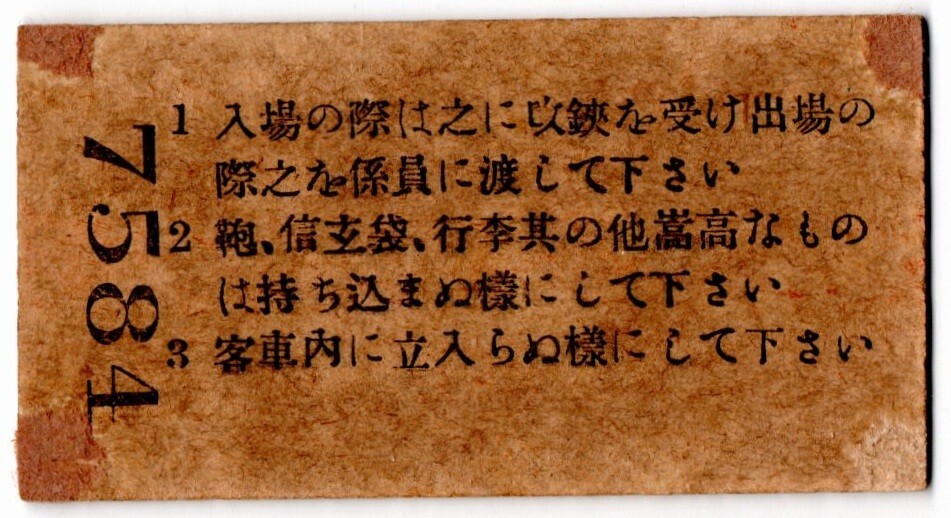 7584
1 入場の際は之に改鋏を受け出場の
際之を係員に渡して下さい
2 鞄、信玄袋、行李其の他嵩高なもの
は持ち込まぬ樣にして下さい
3 客車內に立入らぬ樣にして下さい